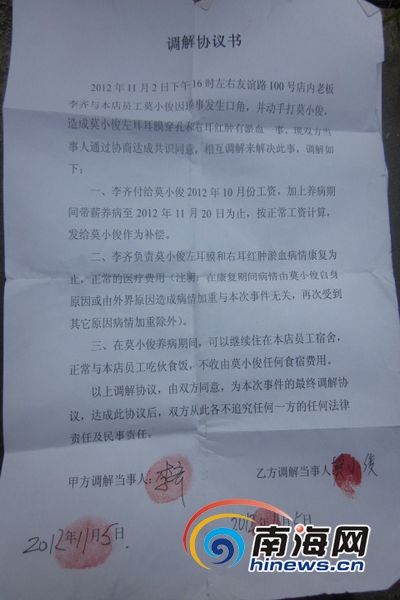 调解协议书
2012年11月2日下午16时左右友谊路100号店内老板
李齐与本店员工莫小俊因琐事发生口角，并动手打莫小俊，
造成莫小俊左耳耳膜穿孔和右耳红肿有淤血一事，现双方当
事人通过协商达成共识同意，相互调解来解决此事，调解如
下：
一、李齐付给莫小俊2012年10月份工资，加上养病期
间带薪养病至2012年11月20日为止，按正常工资计算，
发给莫小俊作为补偿。
二、李齐负责莫小俊左耳膜和右耳红肿淤血病情康复为
止，正常的医疗费用（注明：在康复期间病情由莫小俊自身
原因或由外界原因造成病情加重与本次事件无关，再次受到
其它原因病情加重除外）。
三、在莫小俊养病期间，可以继续住在本店员工宿舍，
正常与本店员工吃伙食饭，不收由莫小俊任何食宿费用。
以上调解协议，由双方同意，为本次事件的最终调解协
议，达成此协议后，双方从此各不追究任何一方的任何法律
责任及民事责任。
甲方调解当事人：李齐 乙方调解当事人 小俊
2012年11月5日. 2012年11月5日
南海网
hinews.cn